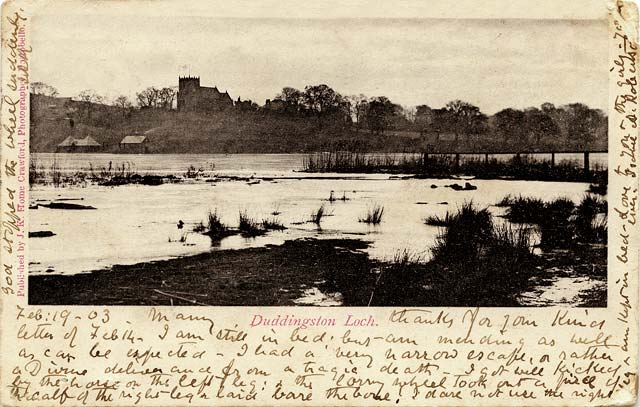 Published by J. R. Home Crawford, Photographer
Duddingston Loch.
Feb: 19-03 Many thanks for your kind
letter of Feb 14- I am still in bed; but am mending as well
as can be expected - I had a very narrow escape, or rather
a Divine deliverance from a tragic death - I got well kicked
by the horse on the left leg; & the lorry wheel took out a piece of
the calf of the right leg & laid bare the bone; I dare not use the right
leg & am kept in bed - Love to
God stopped the wheel suddenly,